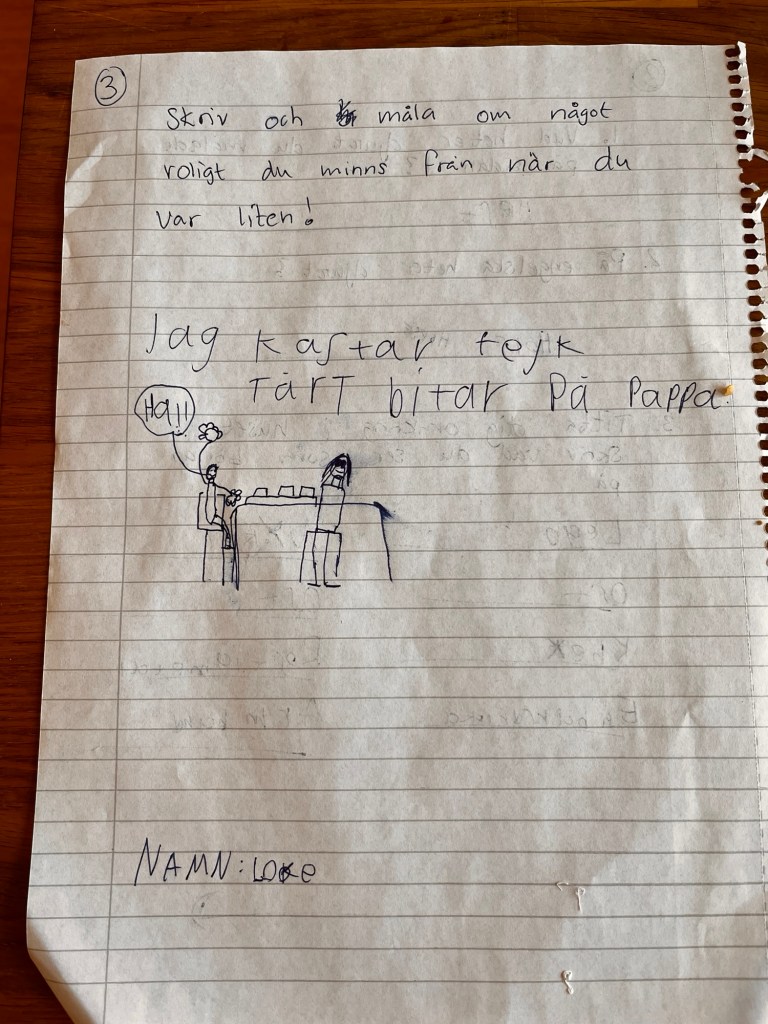 3
Skriv och måla om något
roligt du minns från när du
var liten!
Jag kastar tejk
TÅRT bitar På Pappa.
HA!!
NAMN: LOKe